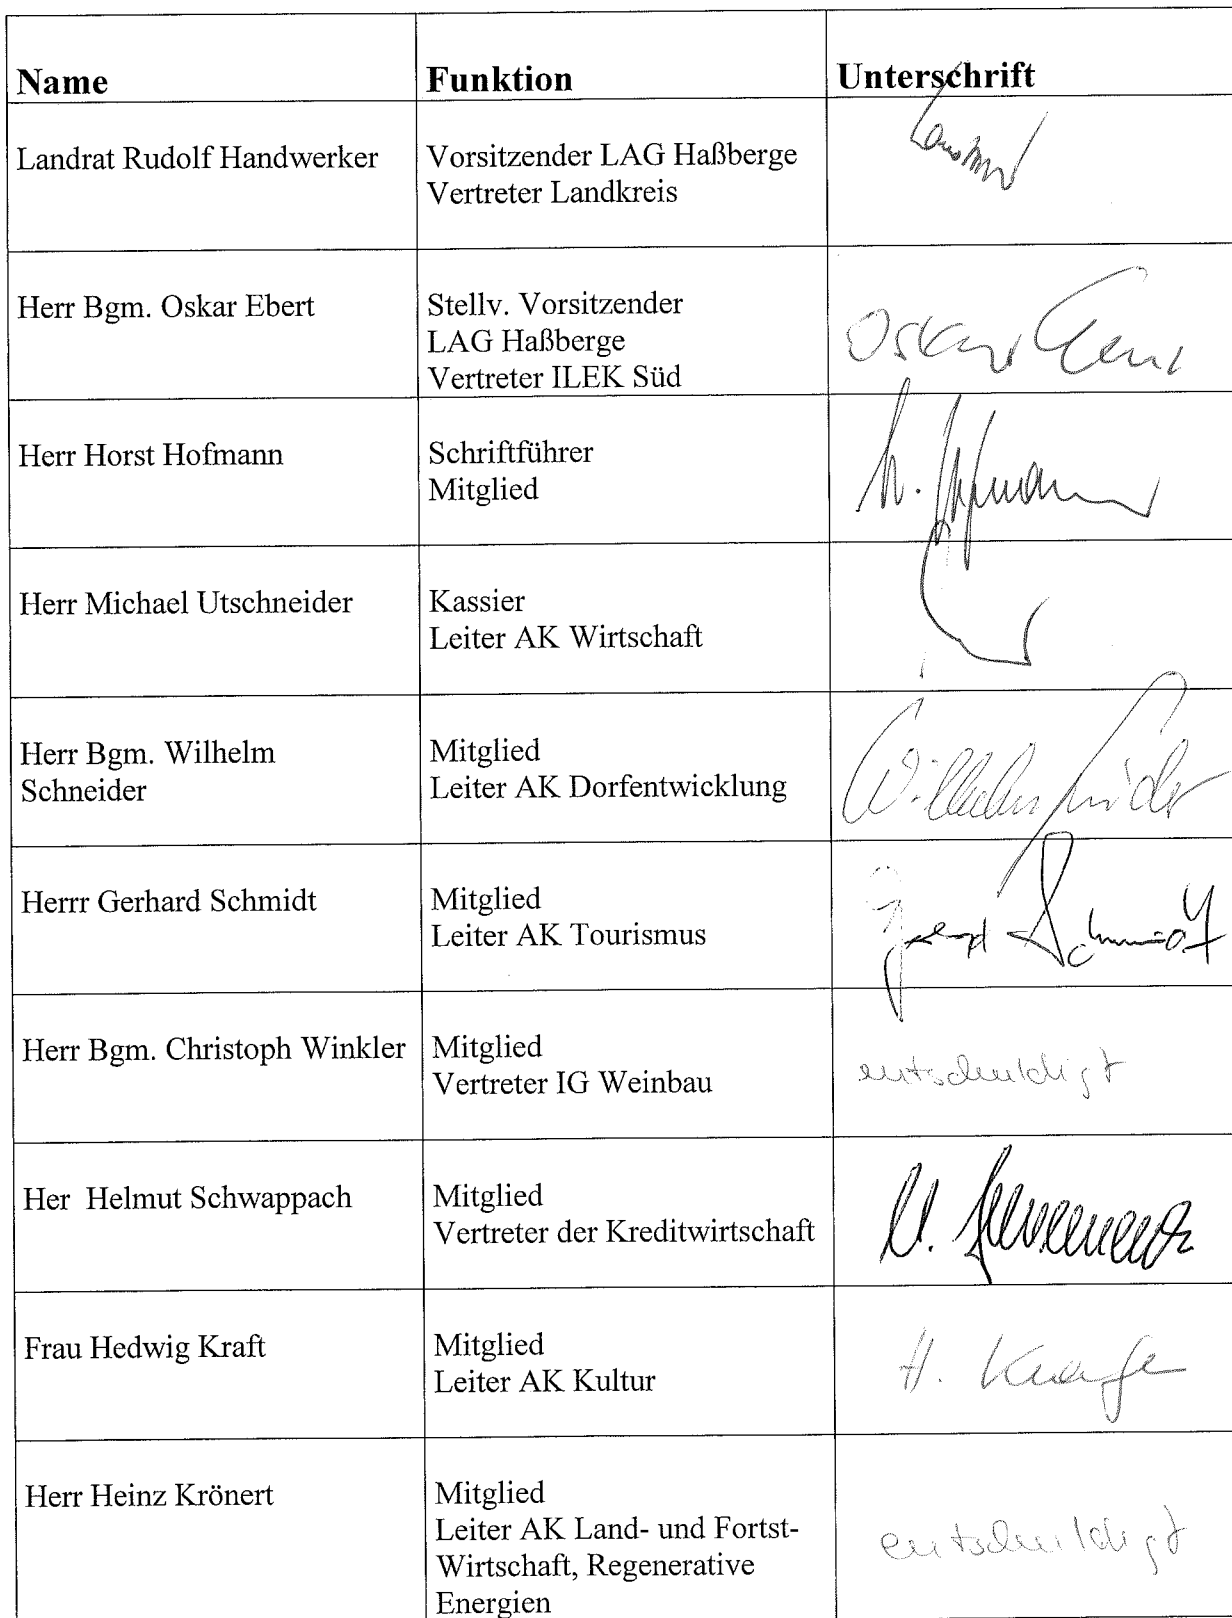 Name Funktion Unterschrift
Landrat Rudolf Handwerker Vorsitzender LAG Haßberge
Vertreter Landkreis
Herr Bgm. Oskar Ebert Stellv. Vorsitzender
LAG Haßberge
Vertreter ILEK Süd
Oskar
Herr Horst Hofmann Schriftführer
Mitglied
Herr Michael Utschneider Kassier
Leiter AK Wirtschaft
Herr Bgm. Wilhelm Mitglied
Schneider Leiter AK Dorfentwicklung
Wilhelm
Herrr Gerhard Schmidt Mitglied
Leiter AK Tourismus
Schmidt
Herr Bgm. Christoph Winkler Mitglied
Vertreter IG Weinbau
entschuldigt
Her Helmut Schwappach Mitglied
Vertreter der Kreditwirtschaft
Frau Hedwig Kraft Mitglied
Leiter AK Kultur
H. Kraft
Herr Heinz Krönert Mitglied
Leiter AK Land- und Fortst-
Wirtschaft, Regenerative
Energien
entschuldigt